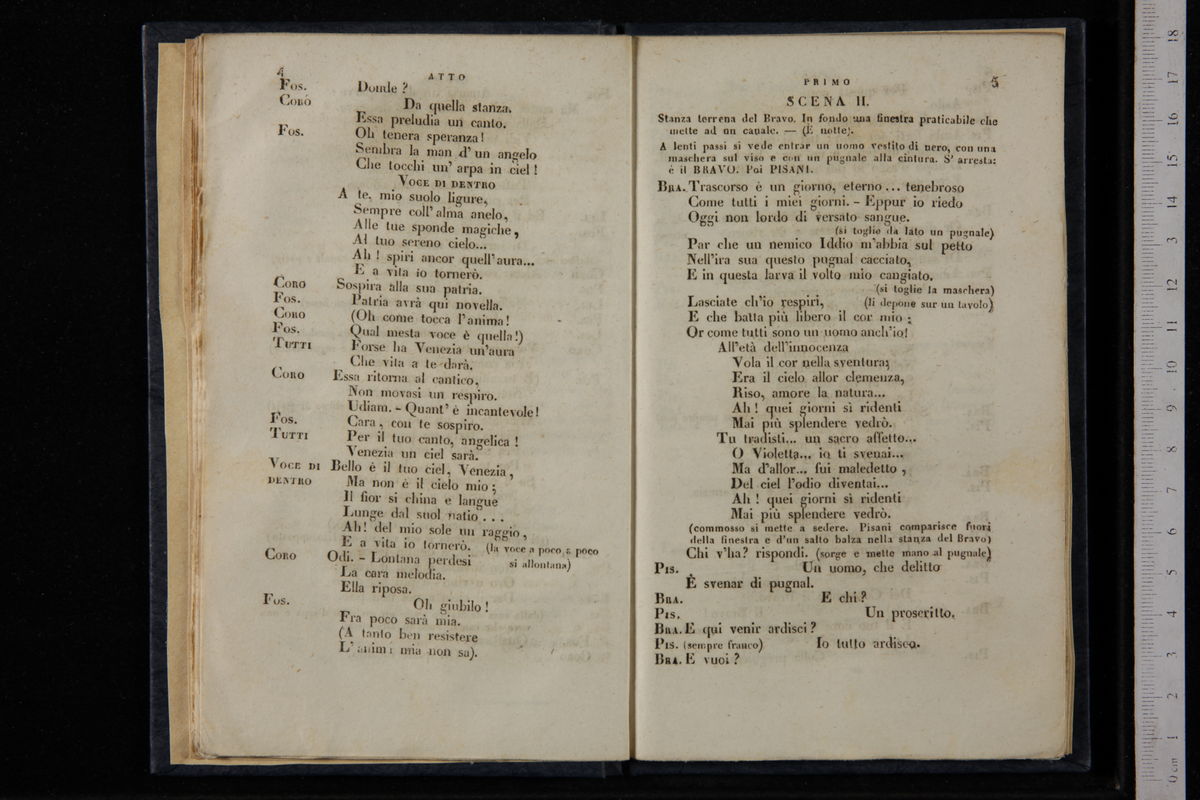 4
ATTO
Fos. Donde ?
Coro Da quella stanza.
Essa preludia un canto.
Fos. Oh tenera speranza !
Sembra la man d' un angelo
Che tocchi un' arpa in ciel !
Voce di dentro
A te, mio suolo ligure,
Sempre coll' alma anelo,
Alle tue sponde magiche,
Al tuo sereno cielo...
Ah ! spiri ancor quell' aura...
E a vita io tornerò.
Coro Sospira alla sua patria.
Fos. Patria avrà qui novella.
Coro (Oh come tocca l'anima !
Fos. Qual mesta voce è quella !)
Tutti Forse ha Venezia un'aura
Che vita a te darà.
Coro Essa ritorna al cantico,
Non movasi un respiro.
Udiam. - Quant' è incantevole !
Fos. Cara, con te sospiro.
Tutti Per il tuo canto, angelica !
Venezia un ciel sarà.
Voce di Bello è il tuo ciel, Venezia,
dentro Ma non è il cielo mio ;
Il fior si china e langue
Lunge dal suol natio . . .
Ah ! del mio sole un raggio,
E a vita io tornerò. (la voce a poco a poco
si allontana)
Coro Odi. - Lontana perdesi
La cara melodia.
Ella riposa.
Fos. Oh giubilo !
Fra poco sarà mia.
(A tanto ben resistere
L' anima mia non sa).
PRIMO
5
SCENA II.
Stanza terrena del Bravo. In fondo una finestra praticabile che
mette ad un canale. — (È notte).
A lenti passi si vede entrar un uomo vestito di nero, con una
maschera sul viso e con un pugnale alla cintura. S' arresta:
è il BRAVO. Poi PISANI.
Bra. Trascorso è un giorno, eterno ... tenebroso
Come tutti i miei giorni. - Eppur io riedo
Oggi non lordo di versato sangue.
(si toglie da lato un pugnale)
Par che un nemico Iddio m'abbia sul petto
Nell'ira sua questo pugnal cacciato,
E in questa larva il volto mio cangiato.
(si toglie la maschera)
Lasciate ch'io respiri, (li depone sur un tavolo)
E che batta più libero il cor mio ;
Or come tutti sono un uomo anch'io!
All'età dell'innocenza
Vola il cor nella sventura;
Era il cielo allor clemenza,
Riso, amore la natura...
Ah ! quei giorni sì ridenti
Mai più splendere vedrò.
Tu tradisti... un sacro affetto...
O Violetta... io ti svenai...
Ma d'allor... fui maledetto ,
Del ciel l'odio diventai...
Ah ! quei giorni sì ridenti
Mai più splendere vedrò.
(commosso si mette a sedere. Pisani comparisce fuori
della finestra e d'un salto balza nella stanza del Bravo)
Chi v'ha? rispondi. (sorge e mette mano al pugnale)
Pis. Un uomo, che delitto
È svenar di pugnal.
Bra. E chi ?
Pis. Un proscritto.
Bra. E qui venir ardisci ?
Pis. (sempre franco) Io tutto ardisco.
Bra. E vuoi ?
0 cm 1 2 3 4 5 6 7 8 9 10 11 12 13 14 15 16 17 18